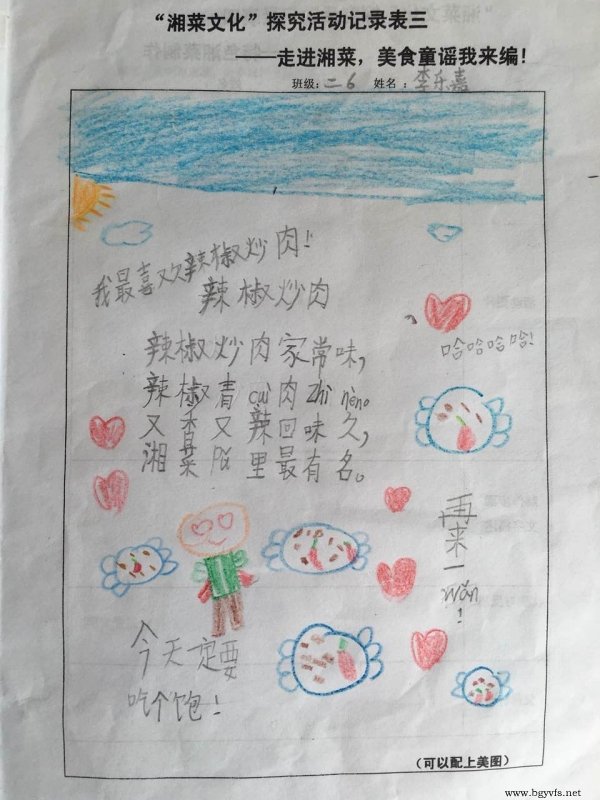 “湘菜文化”探究活动记录表三
——走进湘菜，美食童谣我来编！
班级：二6 姓名：李乐嘉
我最喜欢辣椒炒肉！
辣椒炒肉
辣椒炒肉家常味，
辣椒青cuì肉zhì nèn。
又香又辣回味久，
湘菜馆里最有名。
哈哈哈哈！
再来一wǎn！
今天定要
吃个饱！
（可以配上美图）
www.bgyvfs.net